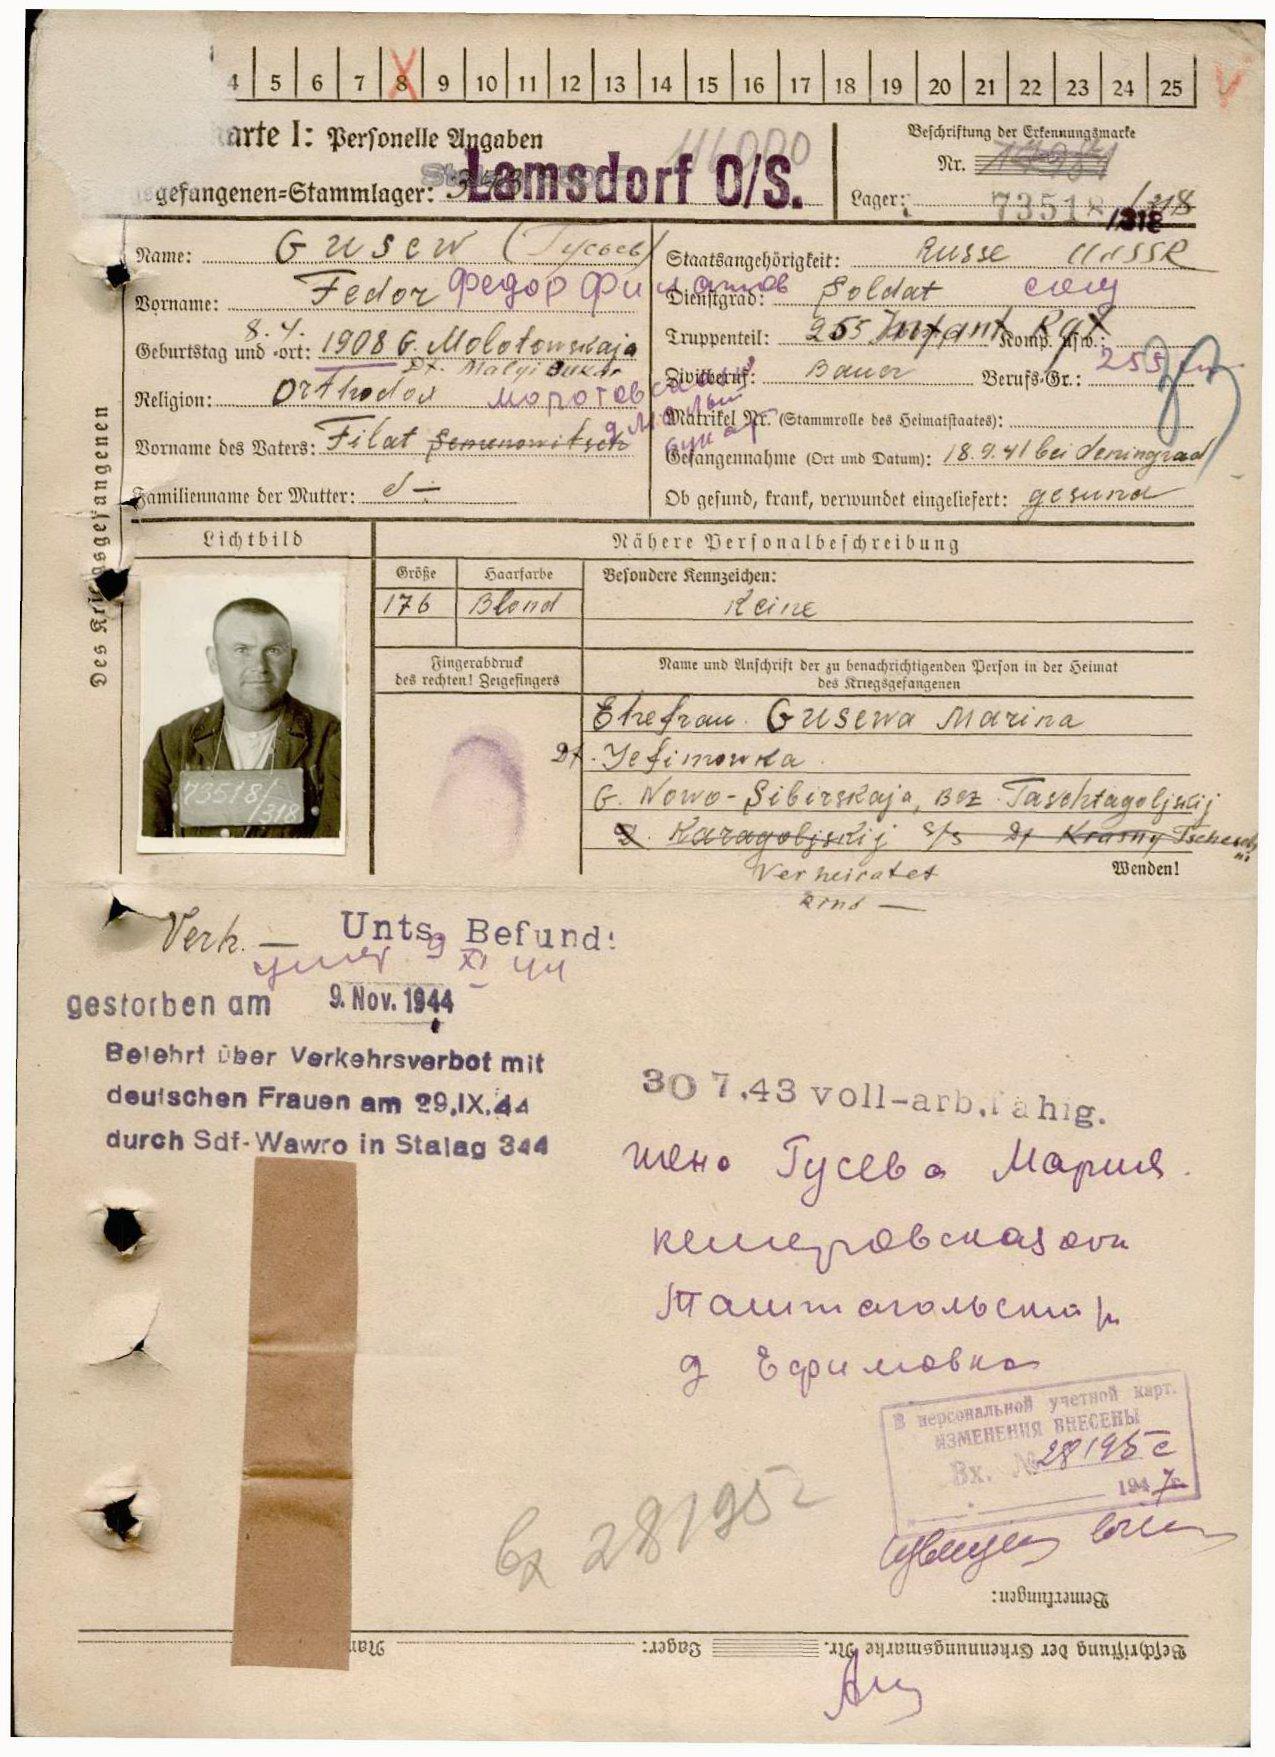 4 5 6 7 8 9 10 11 12 13 14 15 16 17 18 19 20 21 22 23 24 25
karte I: Personelle Angaben
Beschriftung der Erkennungsmarke
Nr.
gefangenen=Stammlager: Lamsdorf O/S.
Lager: 73518 /318
Name: Gusew (Гусев)
Staatsangehörigkeit: Russe UdSSR
Vorname: Fedor Федор
Dienstgrad: Soldat
8.4.
Geburtstag und -ort: 1908 G. Molotowskaja
Truppenteil: 255 Infant Rgt Komp. usw.: 255
Df. Malyi Bukor
Zivilberuf: Bauer Berufs-Gr.:
Religion: Orthodox
Matrikel Nr. (Stammrolle des Heimatstaates):
Vorname des Vaters: Filat Semenowitsch
Gefangennahme (Ort und Datum): 18.9.41 bei Leningrad
Familienname der Mutter:
Ob gesund, krank, verwundet eingeliefert: gesund
Des Kriegsgefangenen
Lichtbild
Nähere Personalbeschreibung
Größe Haarfarbe Besondere Kennzeichen:
176 Blond Keine
Fingerabdruck
des rechten! Zeigefingers
Name und Anschrift der zu benachrichtigenden Person in der Heimat
des Kriegsgefangenen
Ehefrau. Gusewa Marina
Df. Jefimowka
G. Nowo-Sibirskaja, Bez. Taschtagoljskij
Karagoljskij S/S Df Krasny
73518/
318
Wenden!
Verheiratet
Kind —
Verh. — Unts. Befund:
умер 9 XI 44
gestorben am 9. Nov. 1944
Belehrt über Verkehrsverbot mit
deutschen Frauen am 29.IX.44
durch Sdf-Wawro in Stalag 344
30 7.43 voll-arb.fähig.
жена Гусева Мария
кемеровская обл
Таштагольский р
д Ефимовка
В персональной учетной карт.
ИЗМЕНЕНИЯ ВНЕСЕНЫ
Вх. № 28195с
1947г.
Вх 28195
Bemerkungen:
Beschriftung der Erkennungsmarke Nr. Lager: Nam